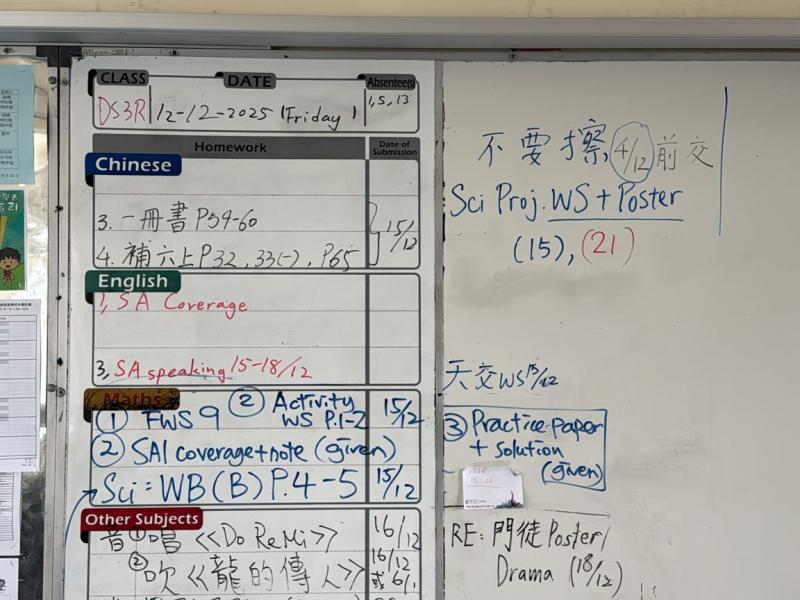 CLASS DATE Absentee(s)
DS3R 12-12-2025 (Friday) 1, 5, 13
Homework Date of Submission
Chinese
3. 一冊書 P.59-60
4. 補六上 P.32, 33(一), P.65 15/12
English
1, SA Coverage
3, SA speaking 15-18/12
Maths
① FWS 9 ② Activity WS P.1-2 15/12
② SA1 coverage+note (given)
Sci: WB(B) P.4-5 15/12
Other Subjects
音 ①唱 <<Do Re Mi>> 16/12
②吹 <<龍的傳人>> 16/12 或 6/1
不要擦 4/12 前交
Sci Proj. WS + Poster
(15), (21)
天交 WS 15/12
③ Practice paper
+ solution
(given)
RE: 門徒 Poster/
Drama (18/12)